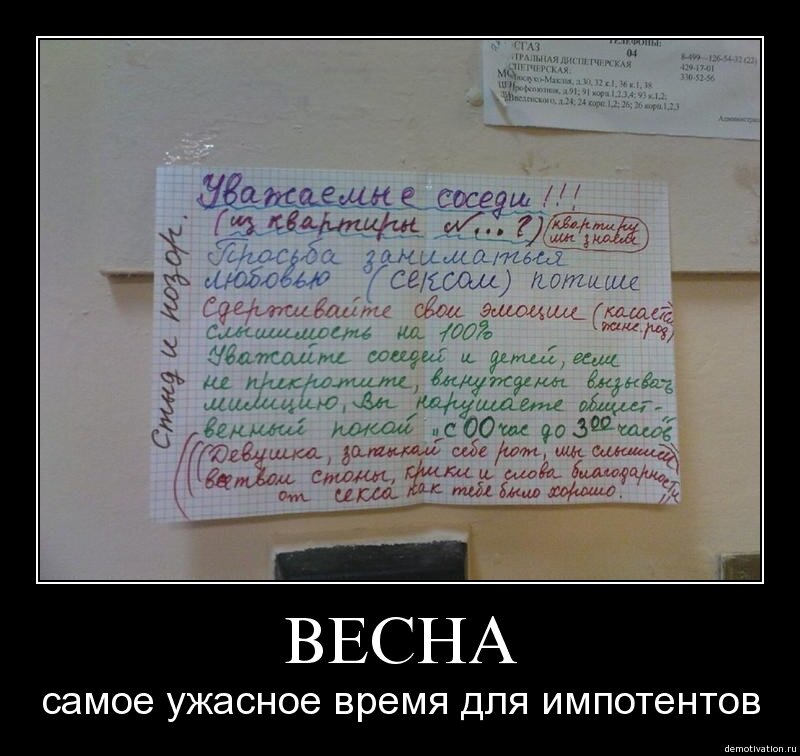 ОСГАЗ
ТЕЛЕФОНЫ:
04
ТРАЛЬНАЯ ДИСПЕТЧЕРСКАЯ
8-499—126-54-32 (22)
СПЕТЧЕРСКАЯ:
429-17-01
Миклухо-Маклая, д.30, 32 к.1, 36 к.1, 38
330-52-56
Профсоюзная, д.91; 91 корп.1,2,3,4; 93 к.1,2;
Введенского, д.24; 24 корп.1,2; 26; 26 корп.1,2,3
Стыд и позор.
Уважаемые соседи!!!
(из квартиры №...?) (квартиру
мы знаем)
Просьба заниматься
любовью (сексом) потише
Сдерживайте свои эмоции (касается
женс. род)
слышимость на 100%
Уважайте соседей и детей, если
не прекратите, вынуждены вызывать
милицию, Вы нарушаете общест-
венный покой „с 00 час до 3 00 часов"
(((Девушка, затыкай себе рот, мы слышим
все твои стоны, крики и слова благодарности
от секса как тебе было хорошо.
ВЕСНА
самое ужасное время для импотентов
demotivation.ru